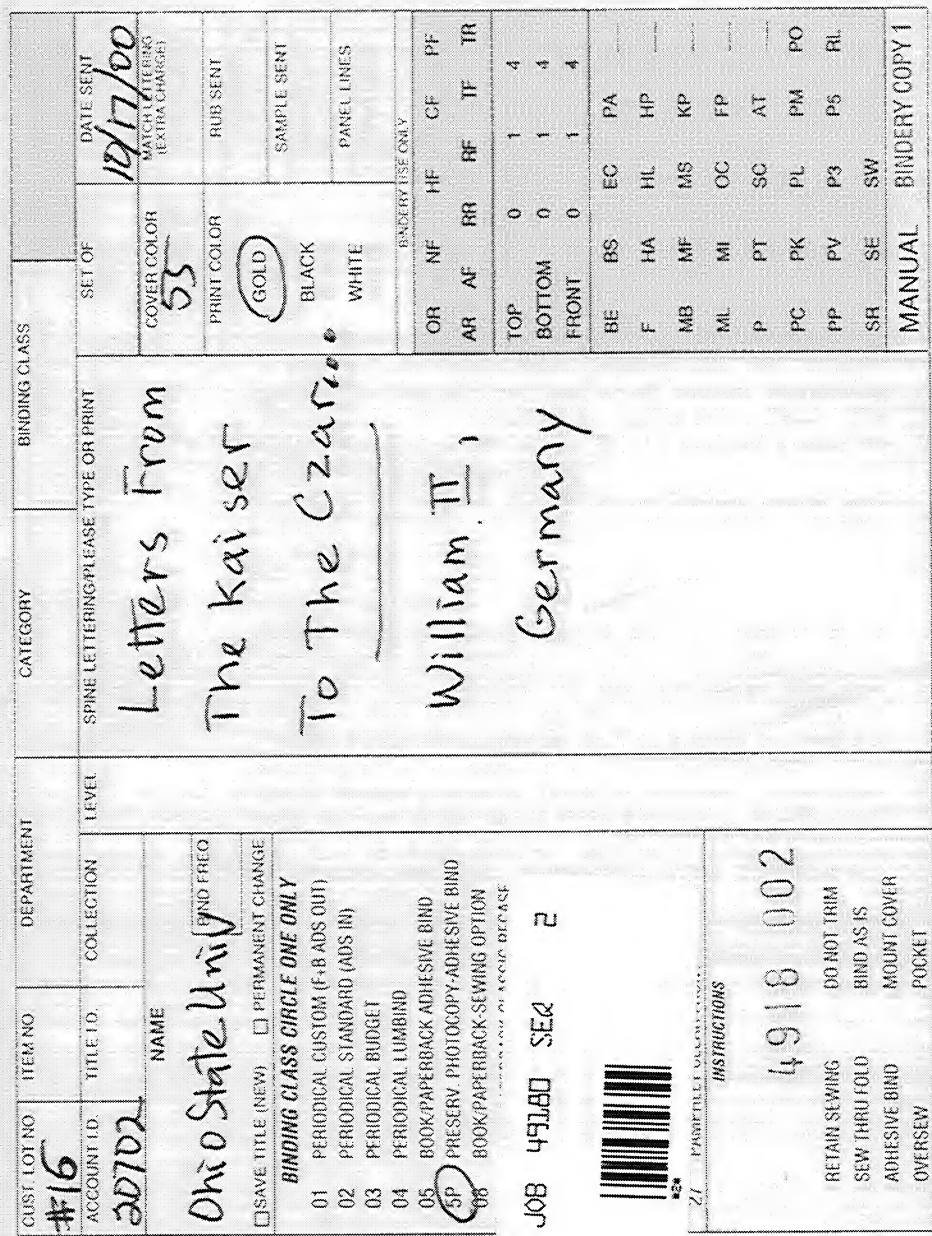 CUST. LOT NO. ITEM NO. DEPARTMENT CATEGORY BINDING CLASS
#16
ACCOUNT I.D. TITLE I.D. COLLECTION LEVEL
20702
NAME
Ohio State Univ
BIND FREQ
□SAVE TITLE (NEW) □ PERMANENT CHANGE
BINDING CLASS CIRCLE ONE ONLY
01 PERIODICAL CUSTOM (F+B ADS OUT)
02 PERIODICAL STANDARD (ADS IN)
03 PERIODICAL BUDGET
04 PERIODICAL LUMBIND
05 BOOK/PAPERBACK ADHESIVE BIND
5P PRESERV. PHOTOCOPY-ADHESIVE BIND
08 BOOK/PAPERBACK-SEWING OPTION
JOB 49180 SEQ 2
*2*
INSTRUCTIONS
4918 002
RETAIN SEWING DO NOT TRIM
SEW THRU FOLD BIND AS IS
ADHESIVE BIND MOUNT COVER
OVERSEW POCKET
SPINE LETTERING/PLEASE TYPE OR PRINT
Letters From
The Kaiser
To The Czar...
William. II,
Germany
SET OF DATE SENT
10/17/00
COVER COLOR MATCH LETTERING
55 (EXTRA CHARGE)
PRINT COLOR RUB SENT
GOLD
SAMPLE SENT
BLACK
PANEL LINES
WHITE
BINDERY USE ONLY
OR NF HF CF PF
AR AF RR RF TF TR
TOP 0 1 4
BOTTOM 0 1 4
FRONT 0 1 4
BE BS EC PA
F HA HL HP
MB MF MS KP
ML MI OC FP
P PT SC AT
PC PK PL PM PO
PP PV P3 P5 RL
SR SE SW
MANUAL BINDERY COPY 1